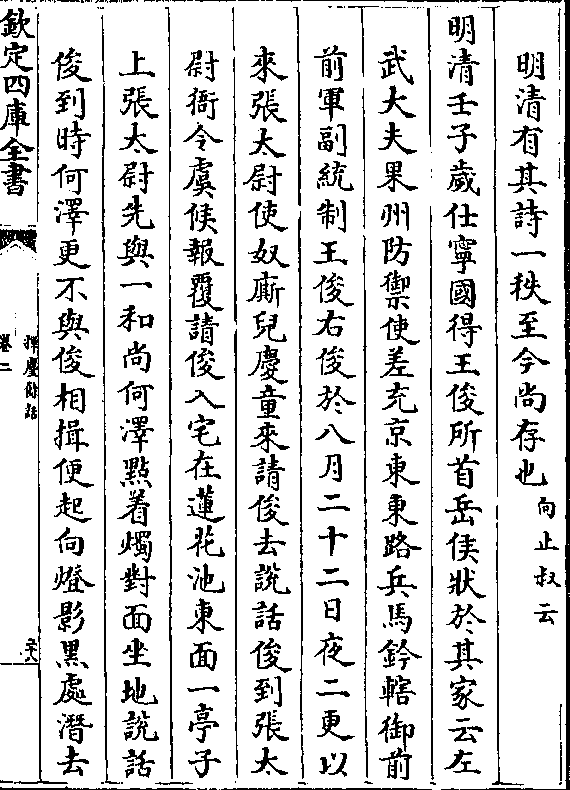 明清有其詩一秩至今尚存也向止叔云
明清壬子歲仕寧國得王俊所首岳侯狀於其家云左
武大夫果州防禦使差充京東東路兵馬鈐轄御前
前軍副統制王俊右俊於八月二十二日夜二更以
來張太尉使奴厮兒慶童來請俊去説話俊到張太
尉衙令虞候報覆請俊入宅在蓮花池東面一亭子
上張太尉先與一和尚何澤點着燭對面坐地説話
俊到時何澤更不與俊相揖便起向燈影黒處潛去
欽定四庫全書
揮麈餘話
卷二
二十八